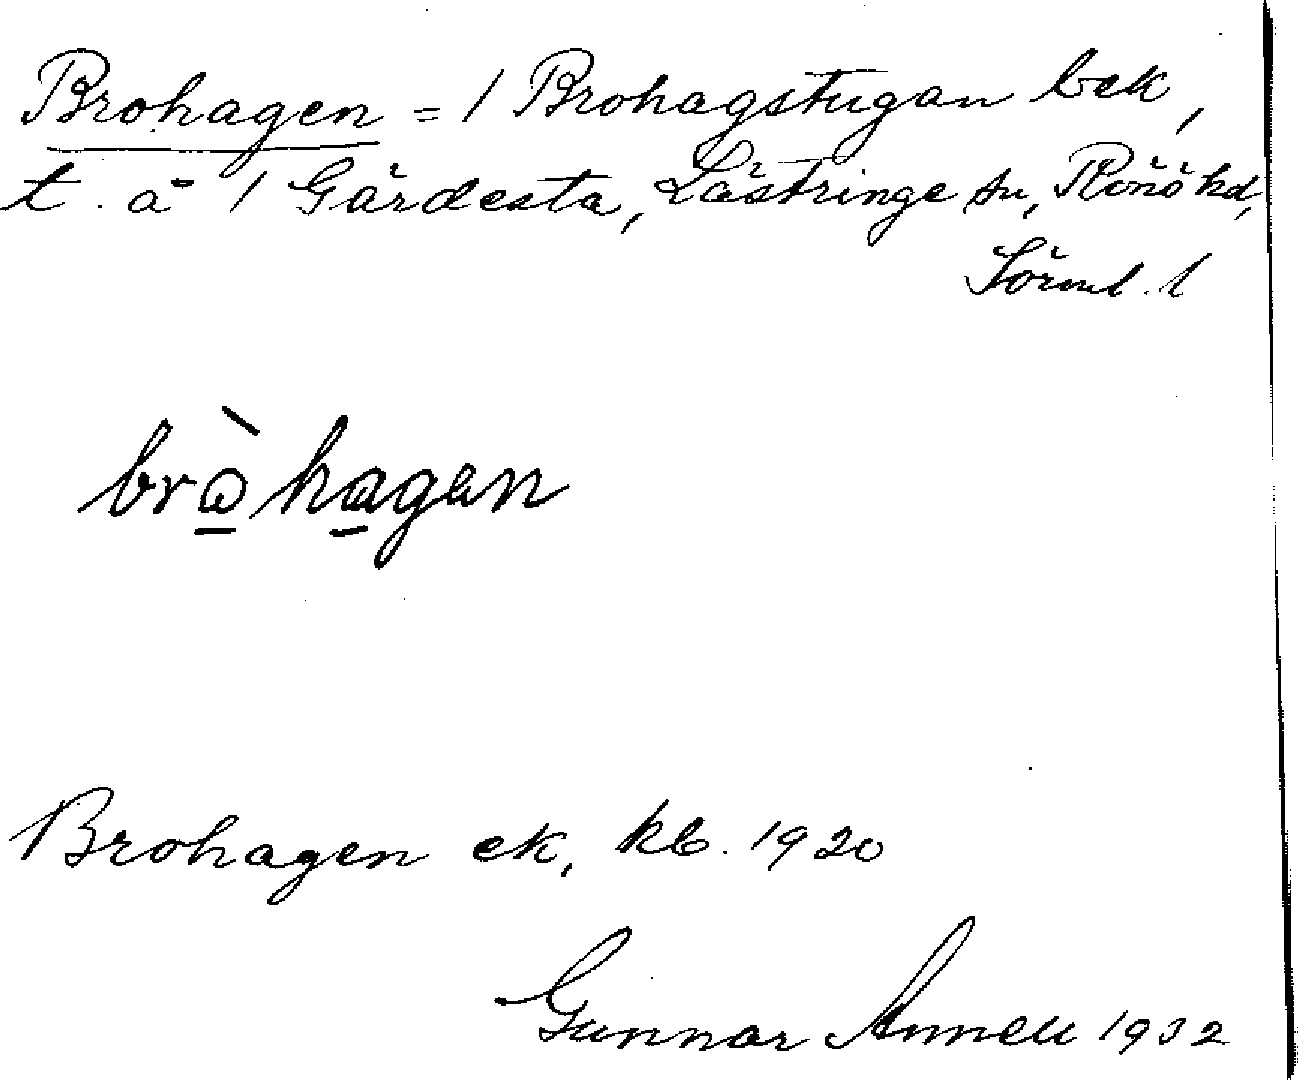 Brohagen = / Brohagstugan bek,
t. å / Gärdesta, Lästringe sn, Rönö hd,
Sörml. l
bròhagen
Brohagen ek, kb. 1920
Gunnar Annell 1932